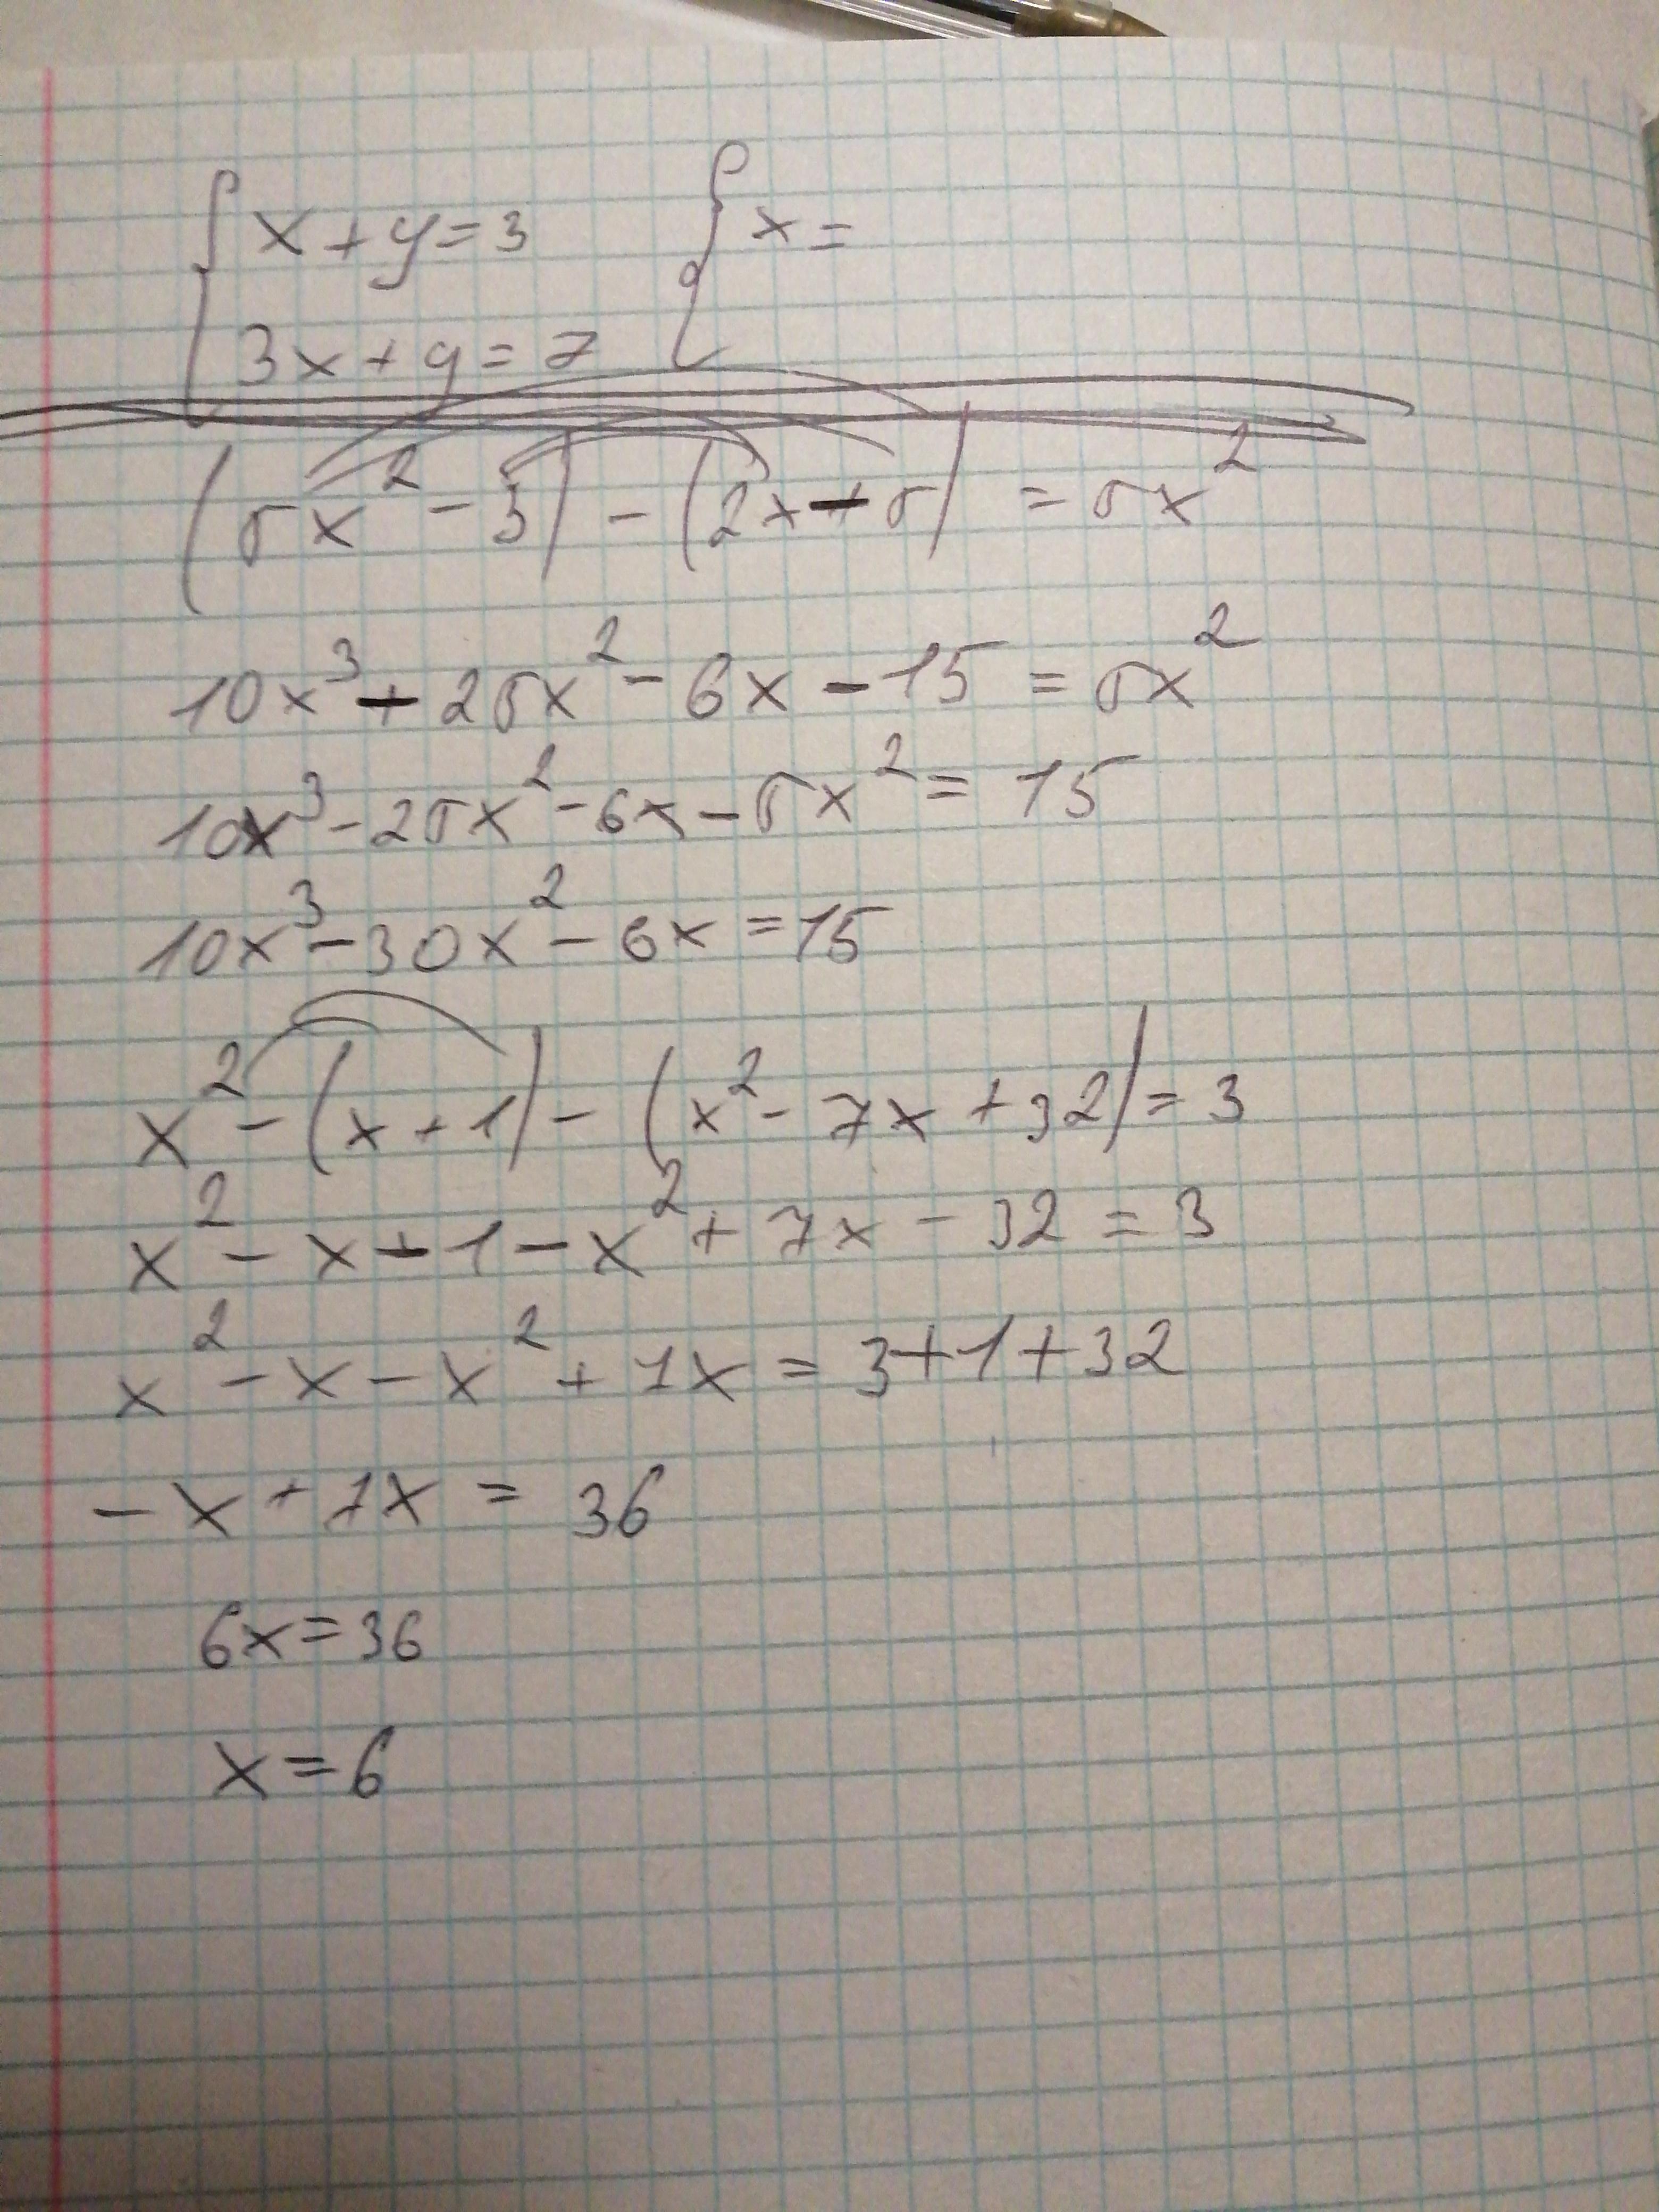 { x + y = 3 { x =
3x + y = 7
(5x² - 3) - (2x + 5) = 5x²
10x³ + 25x² - 6x - 15 = 5x²
10x³ - 25x² - 6x - 5x² = 15
10x³ - 30x² - 6x = 15
x² - (x + 1) - (x² - 7x + 32) = 3
x² - x - 1 - x² + 7x - 32 = 3
x² - x - x² + 7x = 3 + 1 + 32
- x + 7x = 36
6x = 36
x = 6